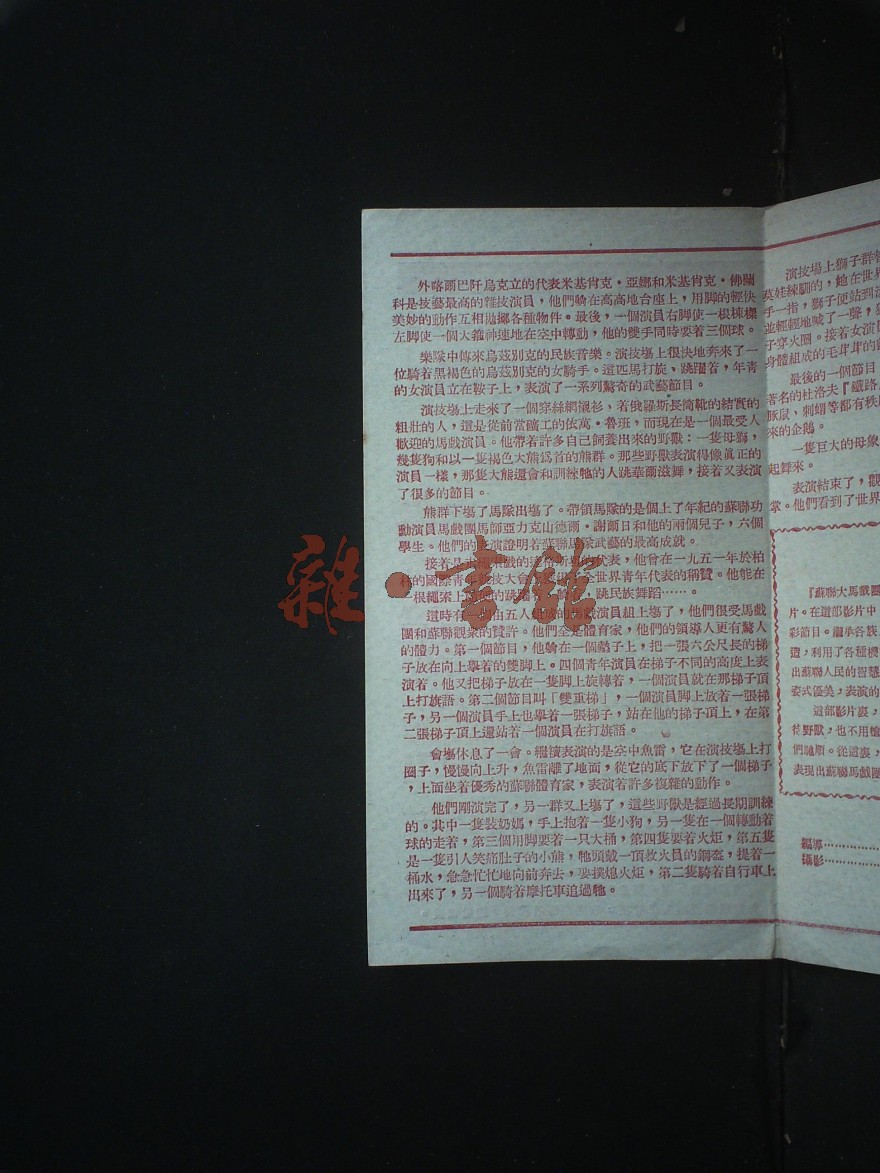 外喀爾巴阡烏克立的代表米基肯克·亞娜和米基肯克·佛蘭
科是技藝最高的雜技演員,他們躺在高高地台座上,用脚的輕快
美妙的動作互相抛擲各種物件。最後,一個演員右脚使一根棟樑
左脚使一個大鐵神速地在空中轉動,他的雙手同時要着三個球。
樂隊中傳來烏茲別克的民族音樂。演技塲上很快地奔來了一
位騎着黑褐色的烏茲別克的女騎手。這匹馬打旋,跳躍着,年青
的女演員立在鞍子上,表演了一系列驚奇的武藝節目。
演技塲上走來了一個穿絲綢襯衫,着俄羅斯長筒靴的結實的
粗壯的人,這是從前當礦工的依萬·魯班,而現在是一個最受人
歡迎的馬戲演員。他帶着許多自己飼養出來的野獸:一隻母獅,
幾隻狗和以一隻褐色大熊爲首的熊群。那些野獸表演得像眞正的
演員一樣,那隻大熊還會和訓練牠的人跳華爾滋舞,接着又表演
了很多的節目。
熊群下塲了馬隊出塲了。帶領馬隊的是個上了年紀的蘇聯功
動演員馬戲團馬師亞力克山德爾·謝爾日和他的兩個兒子,六個
學生。他們的表演證明着蘇聯馬術武藝的最高成就。
接着是 的代表,他曾在一九五一年於柏
林的國際青年競技大會 全世界青年代表的稱贊。他能在
一根繩索上 ,跳民族舞蹈……。
這時有一個由五人組成的馬戲演員組上塲了,他們很受馬戲
團和蘇聯觀衆的贊許。他們全是體育家,他們的領導人更有驚人
的體力。第一個節目,他躺在一個墊子上,把一張六公尺長的梯
子放在向上舉着的雙脚上。四個青年演員在梯子不同的高度上表
演着。他又把梯子放在一隻脚上旋轉着,一個演員就在那梯子頂
上打旗語。第二個節目叫「雙重梯」,一個演員脚上放着一張梯
子,另一個演員手上也舉着一張梯子,站在他的梯子頂上,在第
二張梯子頂上還站着一個演員在打旗語。
會塲休息了一會。繼續表演的是空中魚雷,它在演技塲上打
圈子,慢慢向上升,魚雷離了地面,從它的底下放下了一個梯子
,上面坐着優秀的蘇聯體育家,表演着許多複雜的動作。
他們剛演完了,另一群又上塲了,這些野獸是經過長期訓練
的。其中一隻裝奶媽,手上抱着一隻小狗,另一隻在一個轉動着
球的走着,第三個用脚要着一只大桶,第四隻要着火炬,第五隻
是一隻引人笑痛肚子的小熊,牠頭戴一頂救火員的鋼盔,提着一
桶水,急急忙忙地向前奔去,要撲熄火炬,第二隻騎着自行車上
出來了,另一個騎着摩托車追過牠。
演技塲上獅子群
莫娃練馴的,她在世界
手一指,獅子便站到
並輕輕地喊了一聲,
子穿火圈。接着女演
身體組成的毛茸茸的
最後的一個節目
著名的杜洛夫『鐵路
豚鼠,刺蝟等都有秩
來的企鵝。
一隻巨大的母象
起舞來。
表演結束了,觀
掌。他們看到了世界
『蘇聯大馬戲團
片。在這部影片中,
彩節目。繼承各族
造,利用了各種機
出蘇聯人民的智慧
姿式優美,表演的
這部影片裏,
待野獸,也不用
們馳順。從這裏,
表現出蘇聯馬戲團
編導……
攝影……
雜·書館